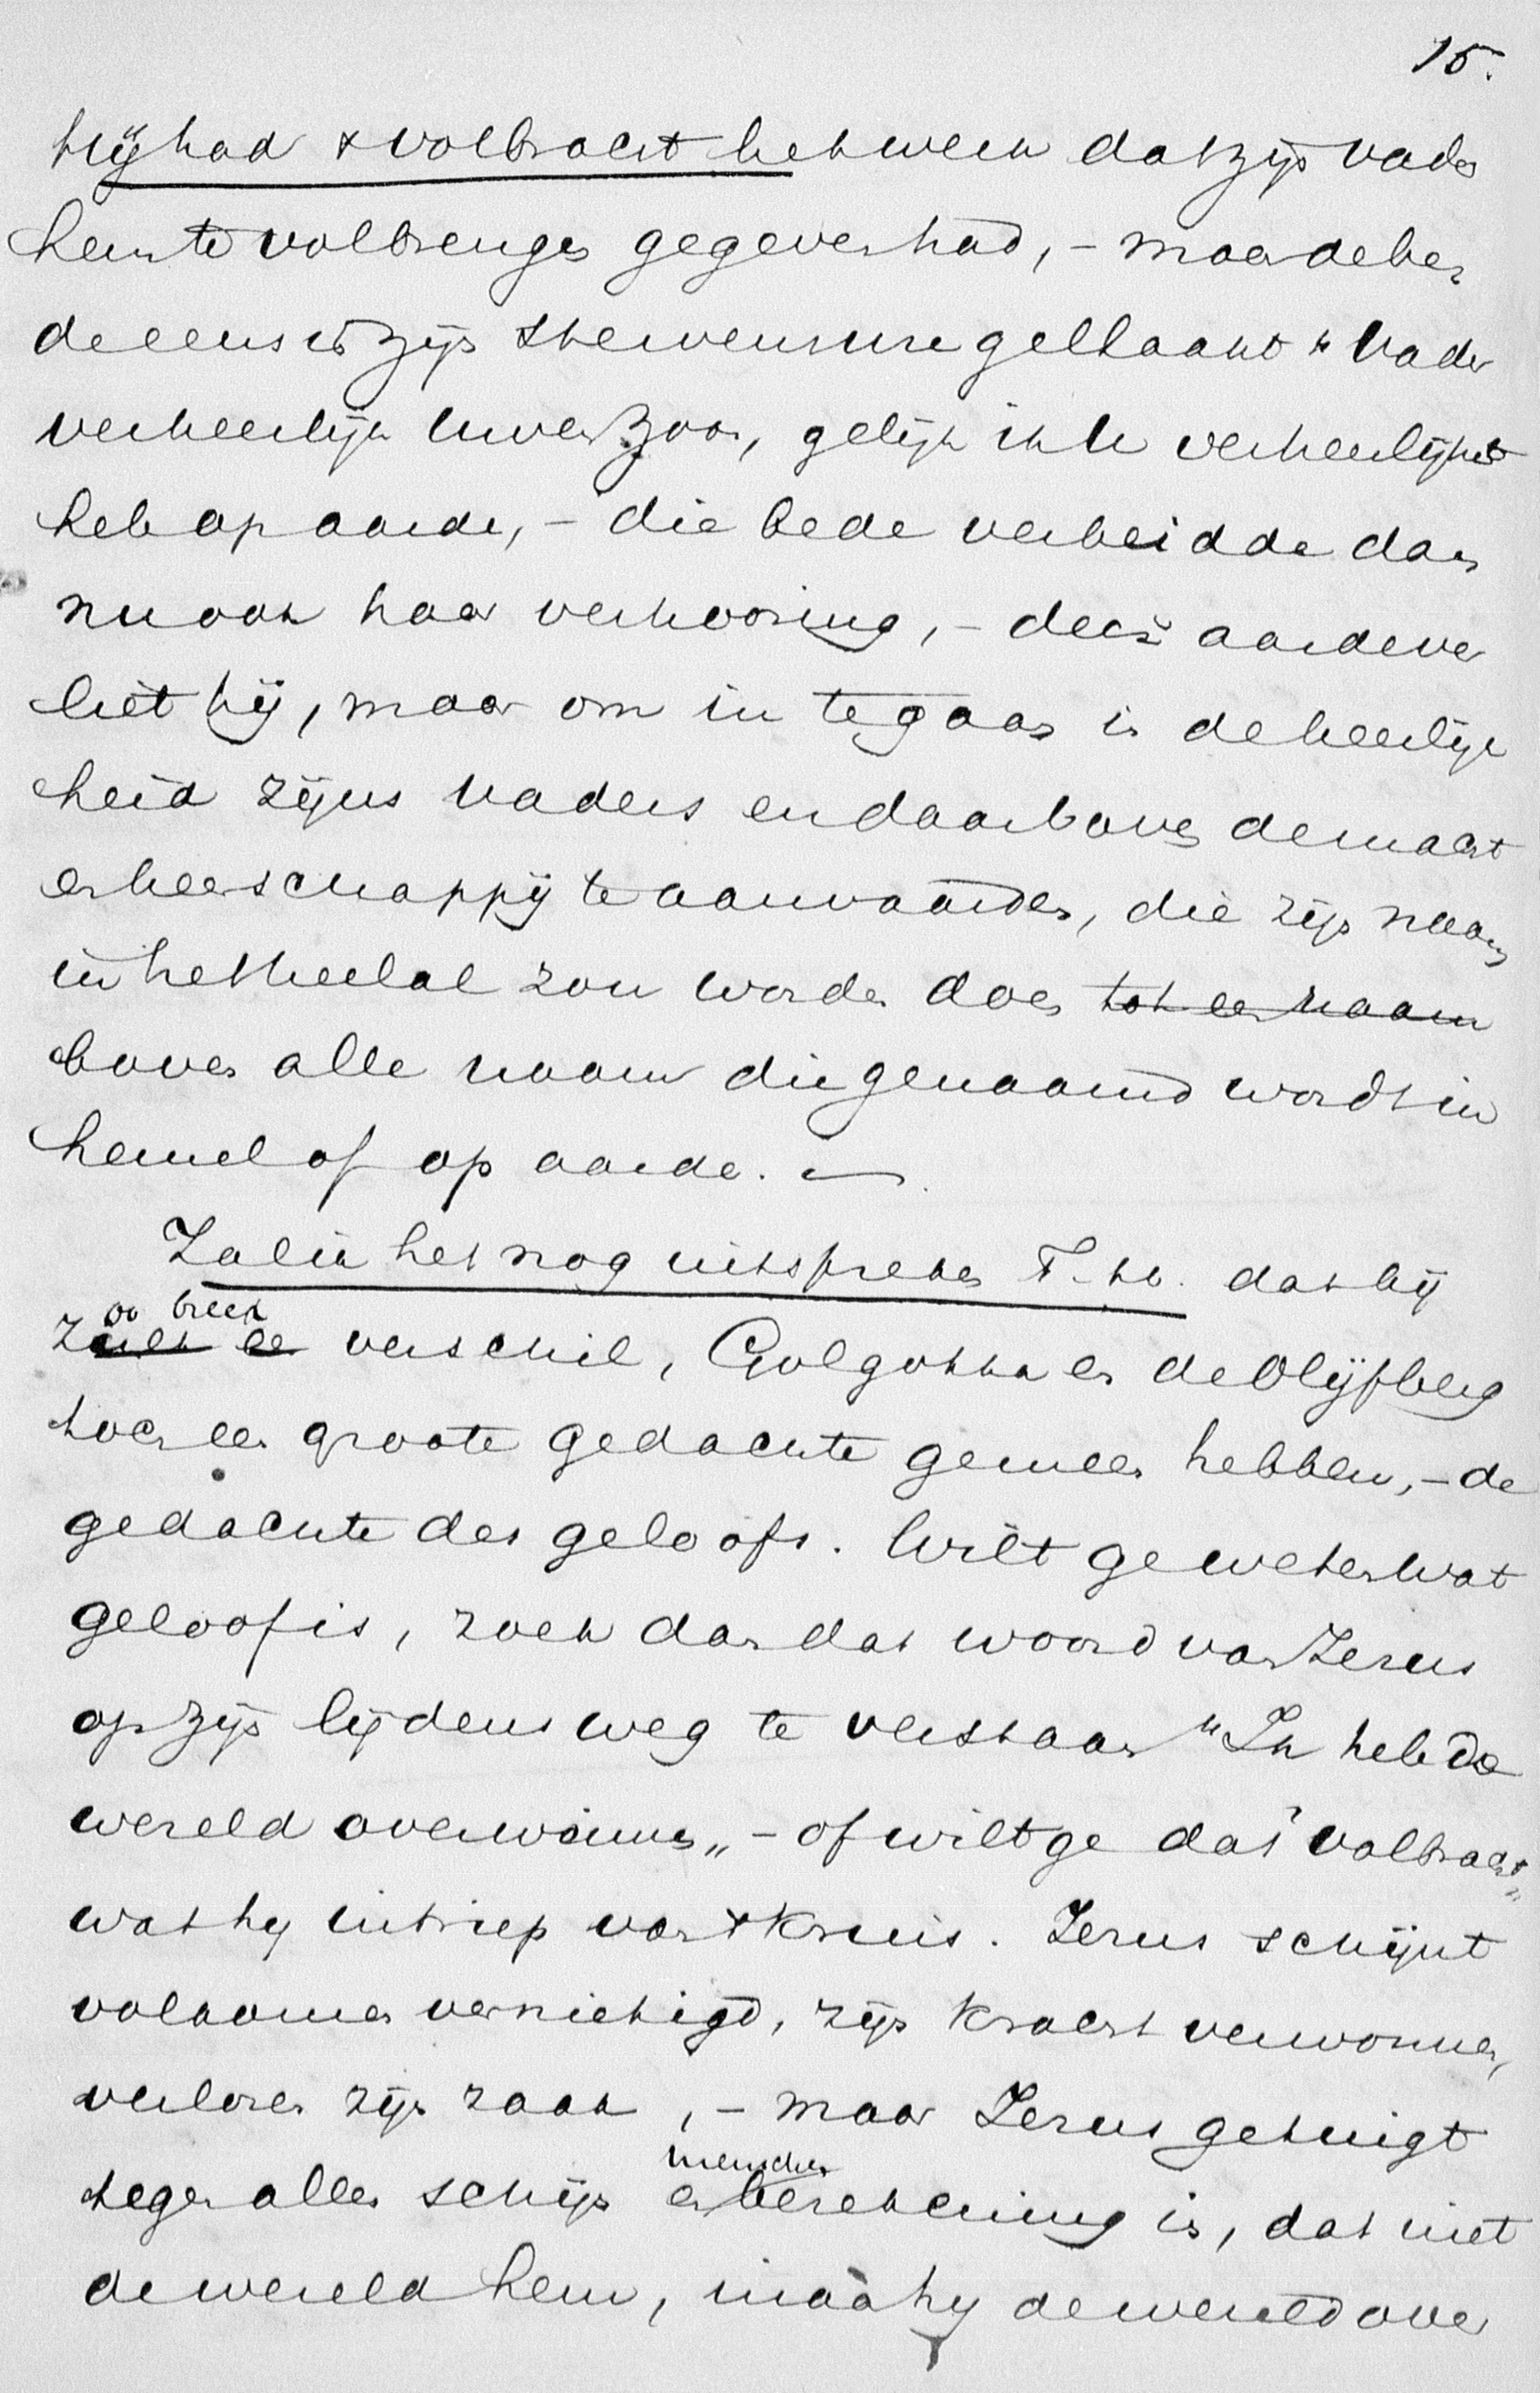 15.
Hij had 't volbracht het werk dat zijn vader
hem te volbrengen gegeven had, - maar de bede
de eens in zijn stervensure geslaakt "Vader
verheerlijk Uwen Zoon, gelijk ik U verheerlijkt
heb op aarde, - die bede verbeidde dan
nu ook haar verhooring, - deez' aarde ver
liet hij, maar om in te gaan in de heerlijk
heid zijns Vaders en daarboven de macht
en heerschappij te aanvaarden, die zijn naam
in het heelal zou worden doen tot een naam
boven alle naam die genaamd wordt in
hemel of op aarde. -
Zal ik het nog uitspreken T. h. dat bij
zoo breed
zulk een verschil, Golgotha en de Olijfberg
toch een groote gedachte gemeen hebben, - de
gedachte des geloofs. Wilt ge weten wat
geloof is, zoek dan dat woord van Jezus
op zijn lijdensweg te verstaan "Ik heb de
wereld overwonnen" - of wilt ge dat "Volbracht"
wat hij uitriep van 't kruis. Jezus schijnt
volkomen vernietigd, zijn kracht verwonnen,
verloren zijn zaak, - maar Jezus getuigt
menschen
tegen allen schijn en berekening in, dat niet
de wereld hem, maar hij de wereld over